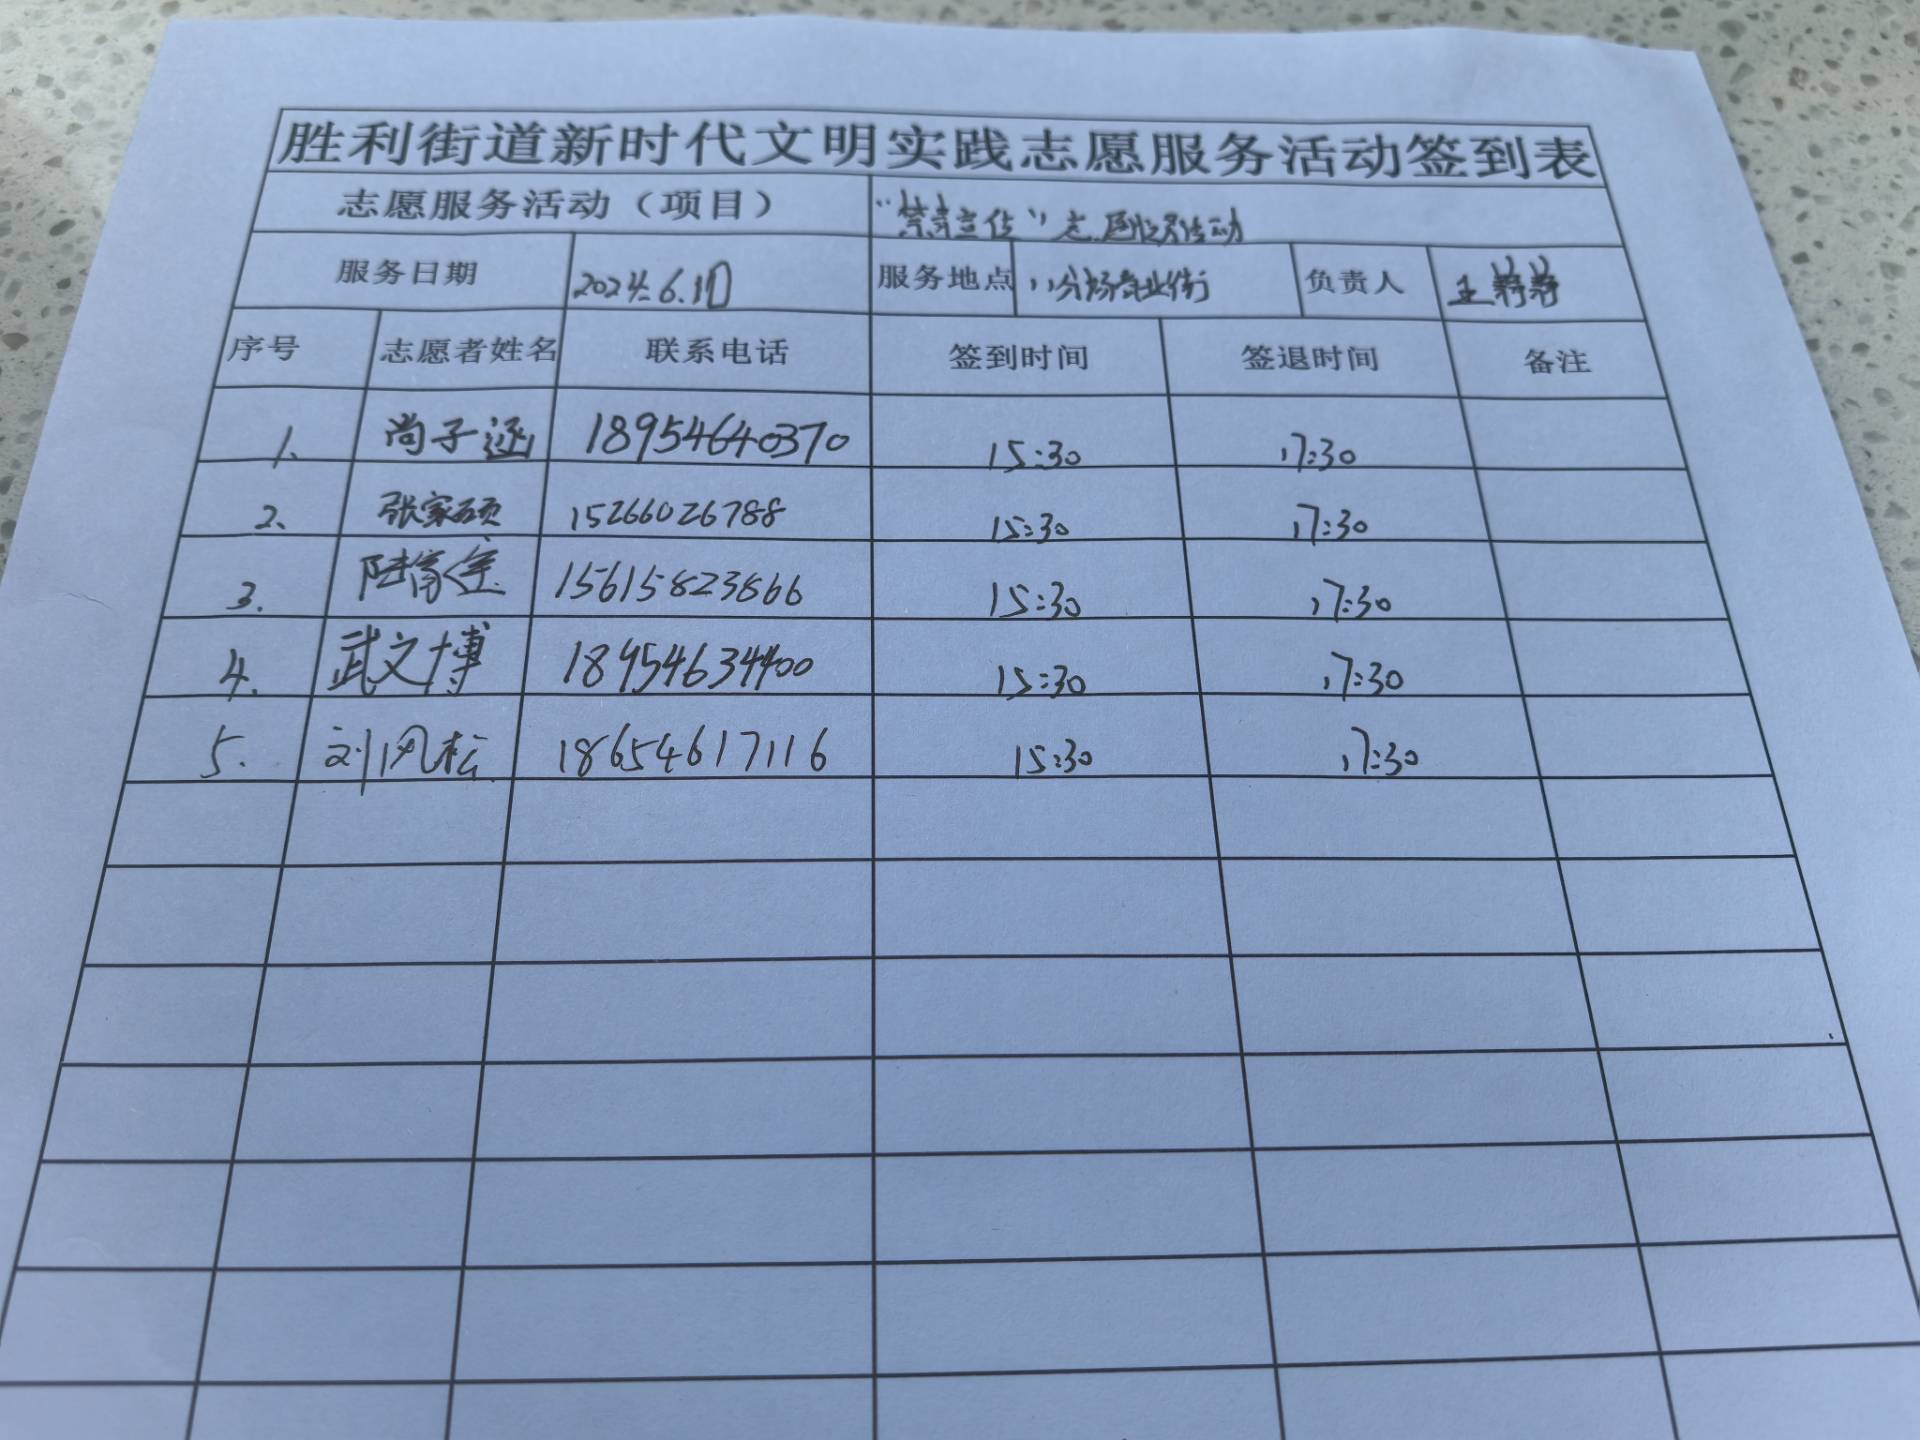 胜利街道新时代文明实践志愿服务活动签到表
志愿服务活动（项目） “禁毒宣传”志愿服务活动
服务日期 服务地点 负责人
序号 志愿者姓名 联系电话 签到时间 签退时间 备注
1. 尚子涵 18954640370 15:30 17:30
2. 张家硕 15266026788 15:30 17:30
3. 15615823866 15:30 17:30
4. 武文博 18954634400 15:30 17:30
5. 刘风松 18654617116 15:30 17:30